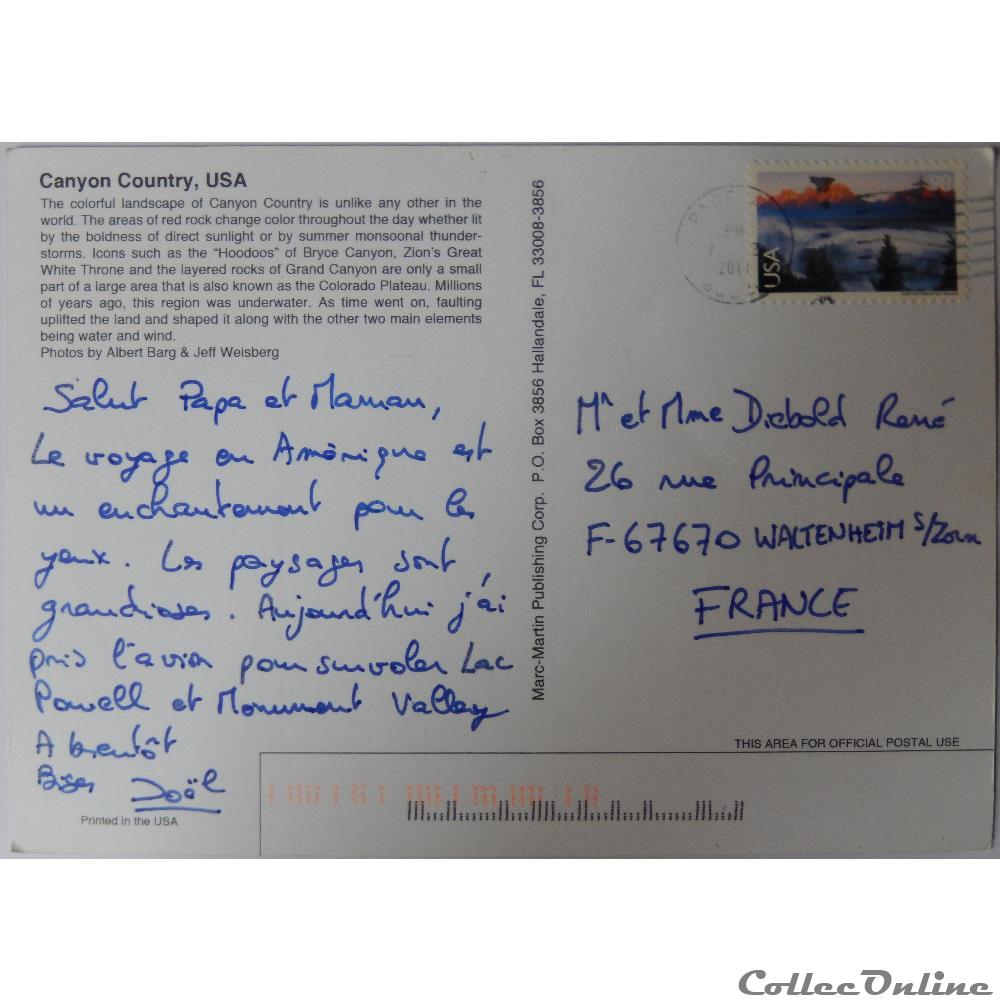 Canyon Country, USA
The colorful landscape of Canyon Country is unlike any other in the
world. The areas of red rock change color throughout the day whether lit
by the boldness of direct sunlight or by summer monsoonal thunder-
storms. Icons such as the “Hoodoos” of Bryce Canyon, Zion's Great
White Throne and the layered rocks of Grand Canyon are only a small
part of a large area that is also known as the Colorado Plateau. Millions
of years ago, this region was underwater. As time went on, faulting
uplifted the land and shaped it along with the other two main elements
being water and wind.
Photos by Albert Barg & Jeff Weisberg
Salut Papa et Maman,
Le voyage en Amérique est
un enchantement pour les
yeux. Les paysages sont
grandioses. Aujourd'hui j'ai
pris l'avion pour survoler Lac
Powell et Monument Valley
A bientôt
Bises Joël
Printed in the USA
Marc-Martin Publishing Corp. P.O. Box 3856 Hallandale, FL 33008-3856
PM
2011
USA
98
Mr et Mme Diebold René
26 rue Principale
F-67670 WALTENHEIM s/Zorn
FRANCE
THIS AREA FOR OFFICIAL POSTAL USE
CollecOnline